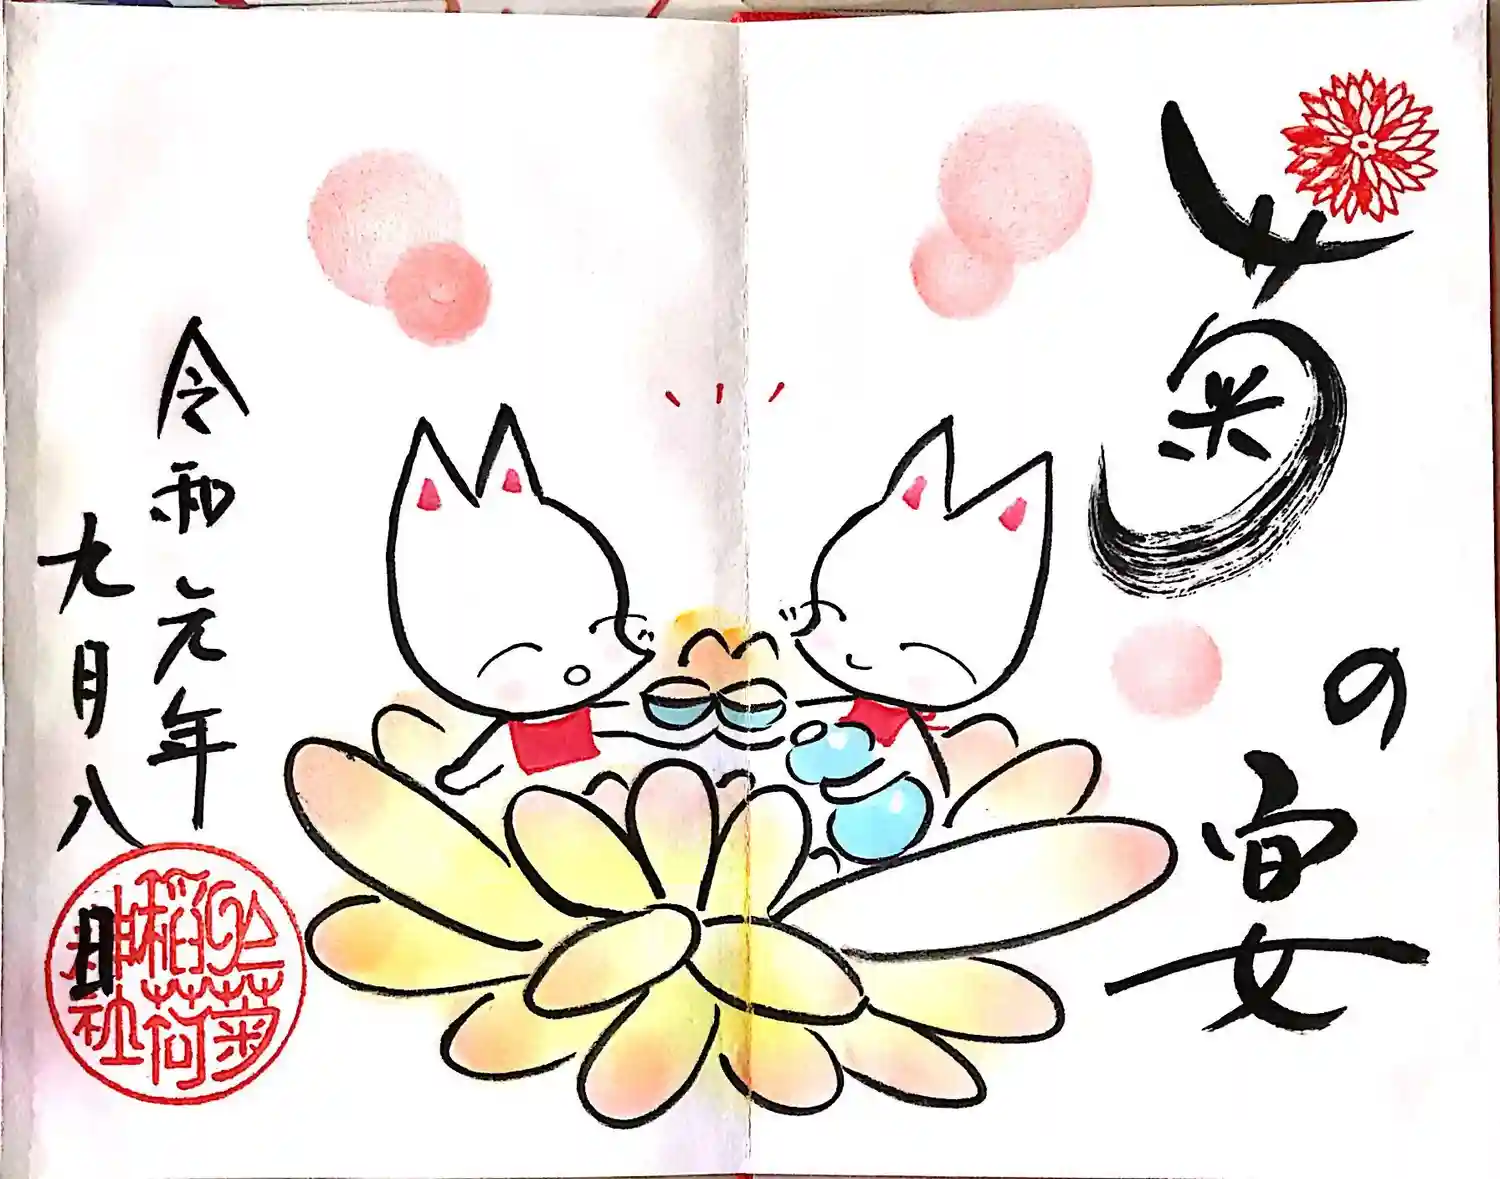 菊
の
宴
令和元年
九月八日
鴻菊
稲荷
神社